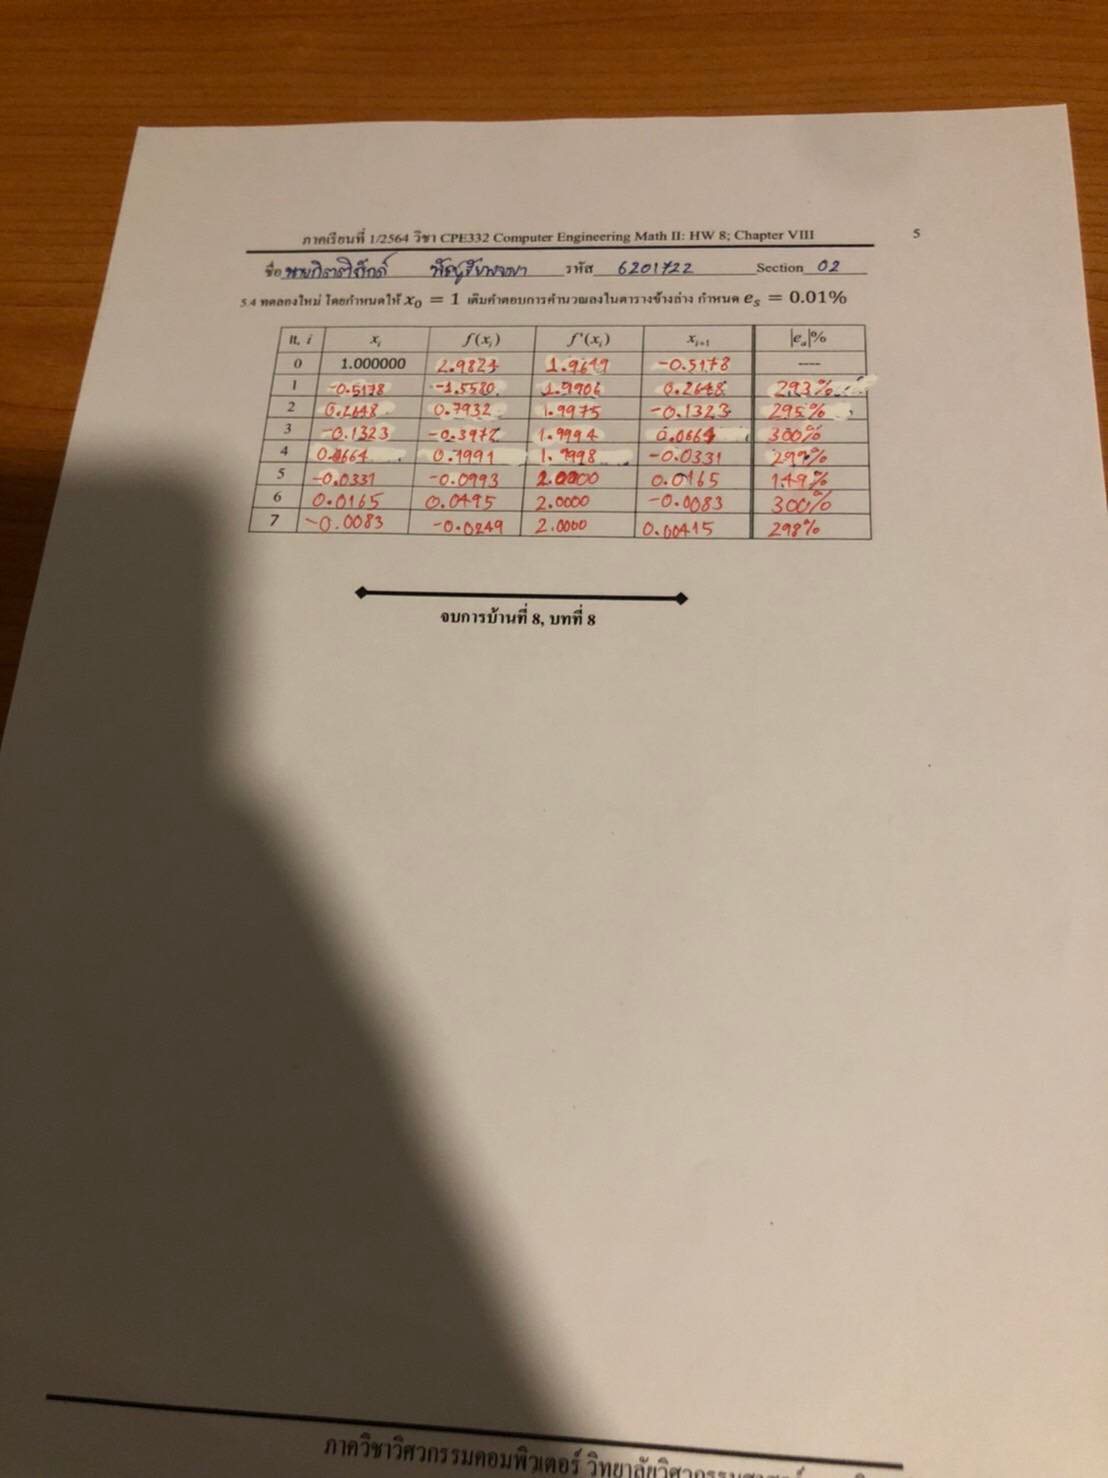 ภาคเรียนที่ 1/2564 วิชา CPE332 Computer Engineering Math II: HW 8; Chapter VIII 5
ชื่อ รหัส 6201722 Section 02
5.4 ทดลองใหม่ โดยกำหนดให้ x₀ = 1 เติมคำตอบการคำนวณลงในตารางข้างล่าง กำหนด eₛ = 0.01%
It, i xᵢ f(xᵢ) f'(xᵢ) xᵢ₊₁ |eₐ|%
0 1.000000 2.9823 1.9649 -0.5178 ----
1 -0.5178 -1.5580 1.9906 0.2648 293%
2 0.2648 0.7932 1.9975 -0.1323 295%
3 -0.1323 -0.3972 1.9994 0.0664 300%
4 0.0664 0.1991 1.9998 -0.0331 299%
5 -0.0331 -0.0993 2.0000 0.0165 149%
6 0.0165 0.0495 2.0000 -0.0083 300%
7 -0.0083 -0.0249 2.0000 0.00415 298%
จบการบ้านที่ 8, บทที่ 8
ภาควิชาวิศวกรรมคอมพิวเตอร์ วิทยาลัยวิศวกรรมศาสตร์